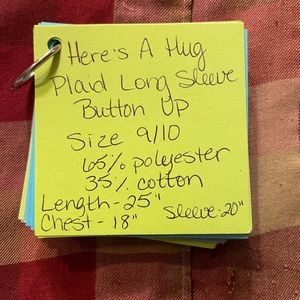 Here's A Hug
Plaid Long Sleeve
Button Up
Size 9/10
65% polyester
35% cotton
Length - 25"
Chest - 18" Sleeve - 20"